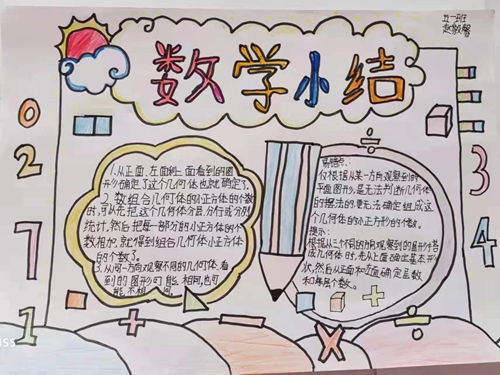 五一班
数学小结
1.从正面、左面和上面看到的图
形确定了这个几何体也就确定了。
2.数组合几何体的小正方体的个数
时,可以先把这个几何体分层、分行或分列
统计,然后把每一部分的小正方体的个
数相加,就得到组合几何体小正方体
的个数了。
3.从同一方向观察不同的几何体,看
到的图形可能相同,也可
能不相同。
易错点:
仅根据从某一方向观察到的
平面图形,是无法判断几何体
的摆法的,更无法确定组成这
个几何体的小正方形的个数。
提示:
根据从三个不同方向观察到的图形搭
成几何体时,先从上面确定基本形
状,然后从正面和左面确定层数
和每层个数。
0
2
7
1
1
2